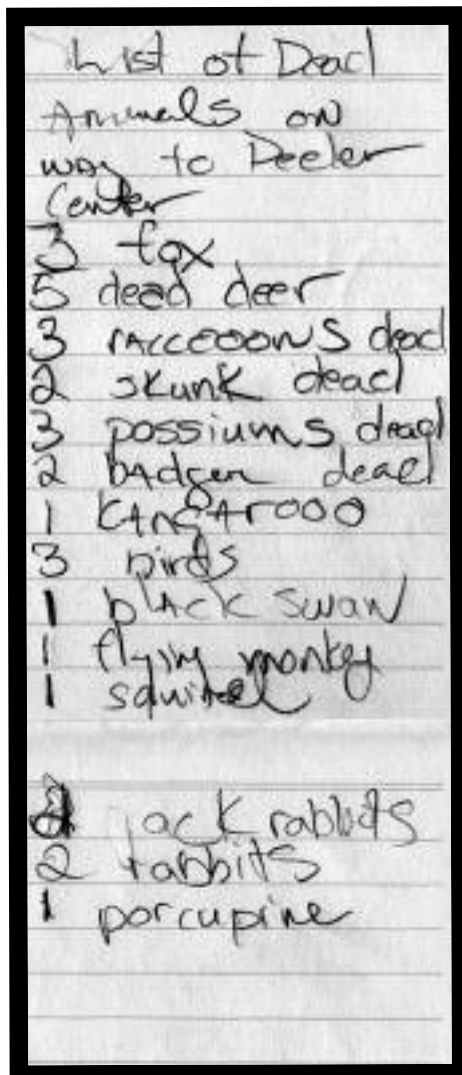 List of Dead
Animals on
way to Deeler
Center
3 fox
5 dead deer
3 raccooons dead
2 skunk dead
3 possiums dead
2 badger dead
1 kangarooo
3 birds
1 black swan
1 flying monkey
1 squirrel
jack rabbits
2 rabbits
1 porcupine